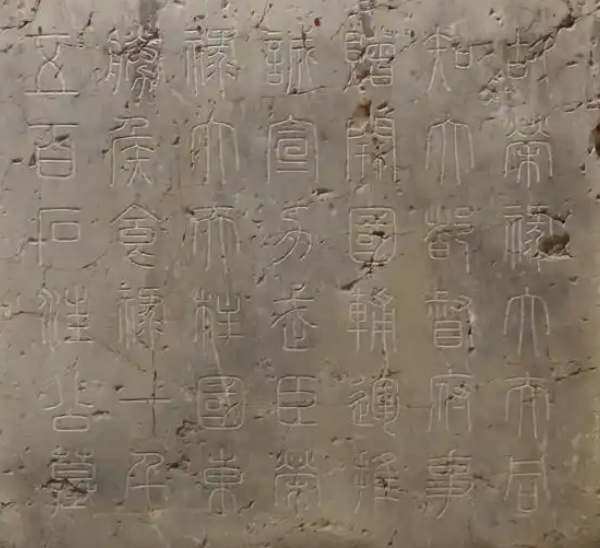 故榮祿大夫同
知大都督府事
贈開國輔運推
誠宣力武臣榮
祿大夫柱國東
勝侯食祿一千
五百石汪公墓